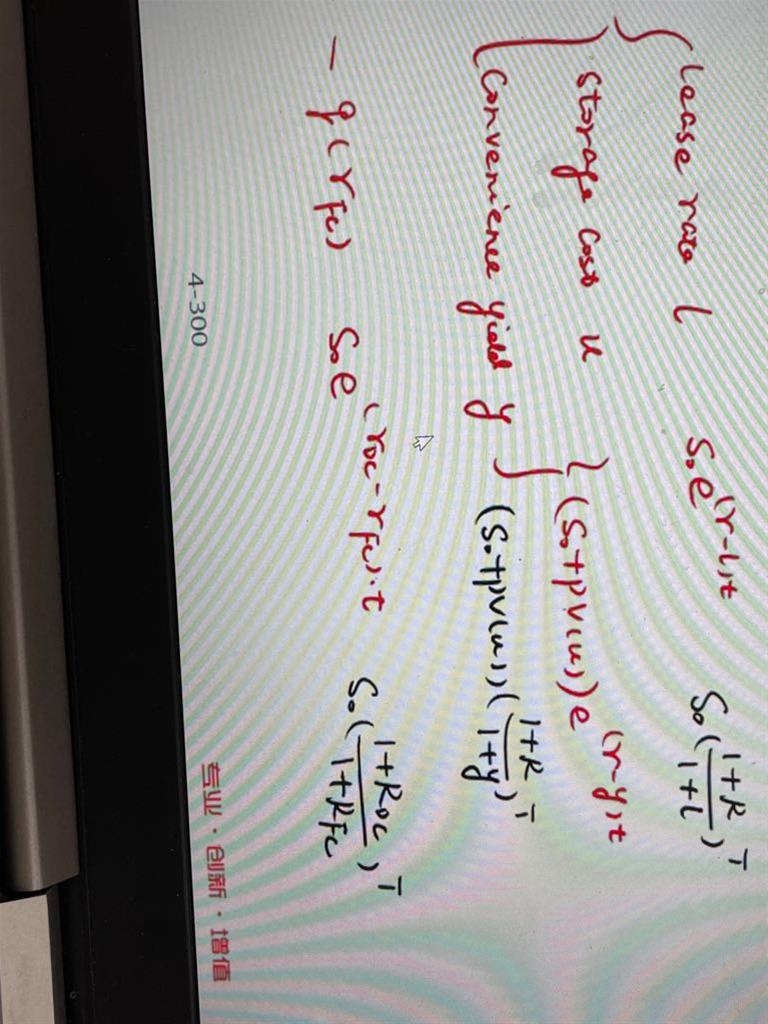 lease rate l S₀e^(r-l)t S₀(\frac{1+R}{1+l})^T
storage cost u (S₀+PV(u))e^(r-y)t
convenience yield y (S₀+PV(u))(\frac{1+R}{1+y})^T
- q(r_FC) S₀e^(r_DC-r_FC)·t S₀(\frac{1+R_DC}{1+R_FC})^T
4-300
专业·创新·增值